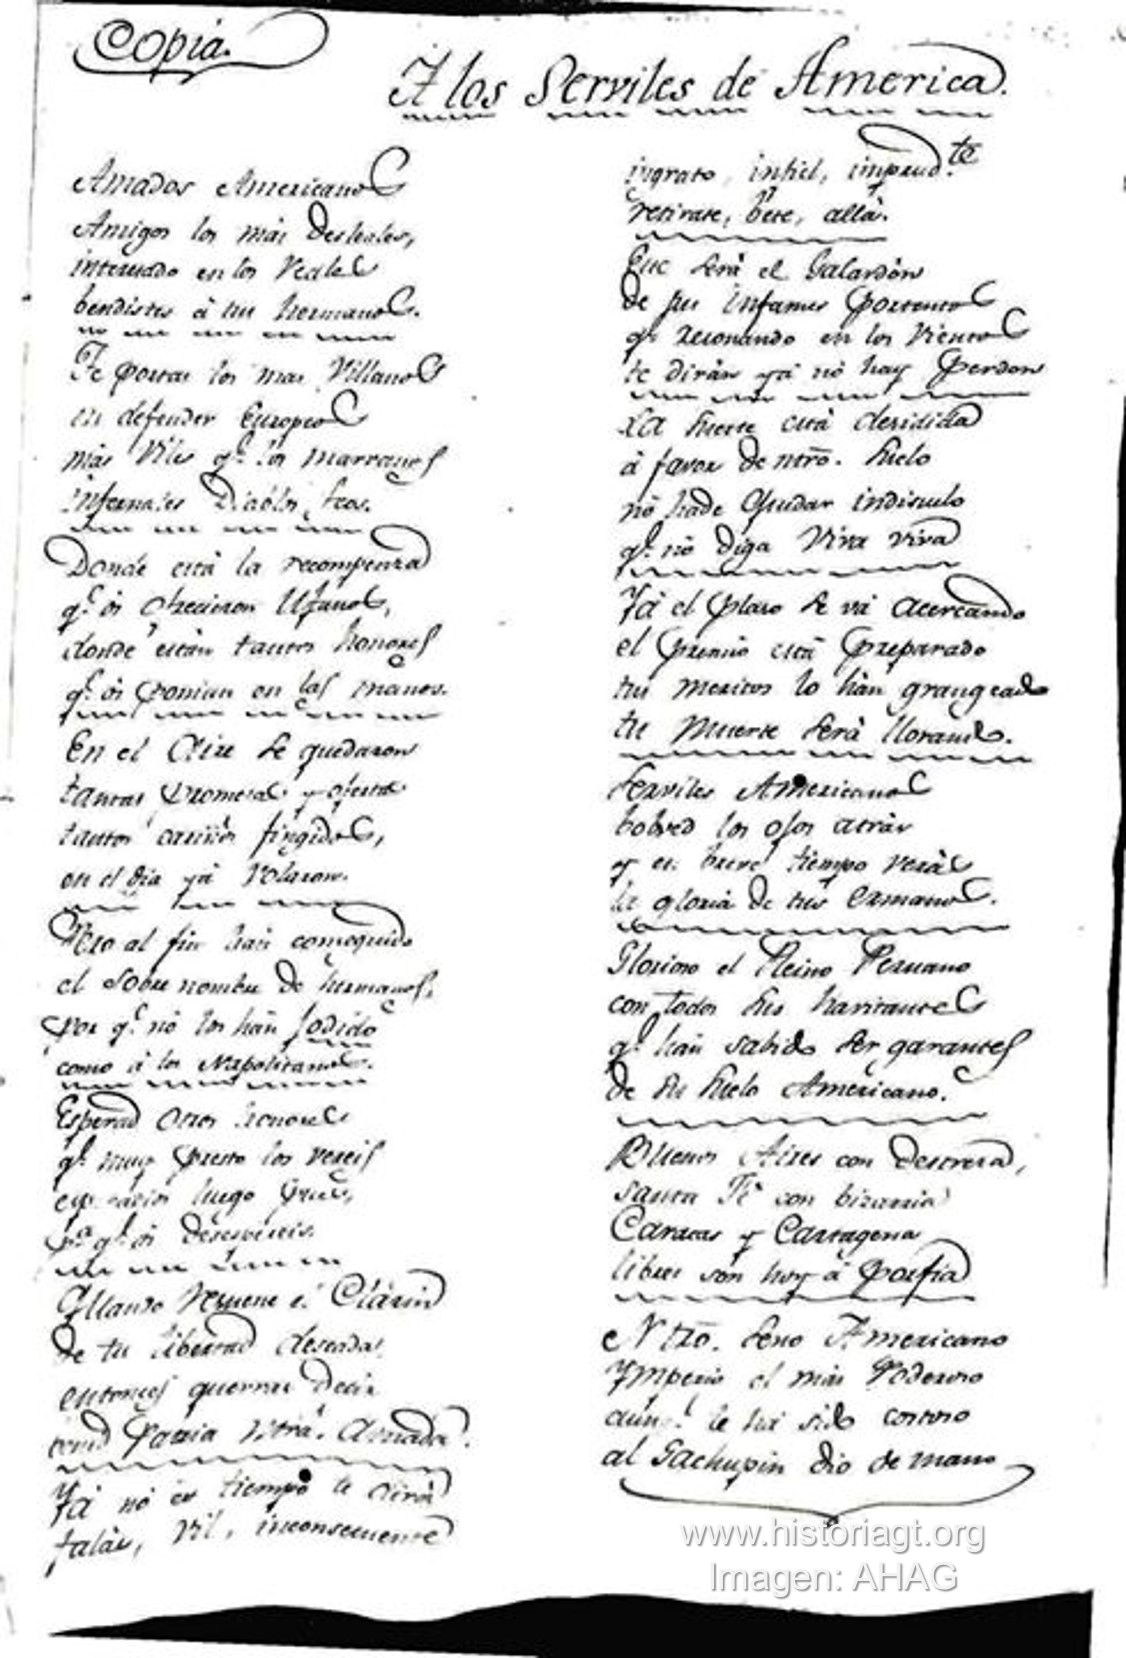 Copia.
A los Serviles de America.
Amados Americanos
Amigos los más desleales,
interesado en los Reales
bendistes á tus hermanos.
Te portas los mas Villanos
en defender Europeos
más Viles q.e los marranos
infernales Diablos, feos.
Donde está la recompenza
q.e ós ofrecieron Ufanos,
donde están tantos honores
q.e ós ponian en las manos.
En el Aire se quedaron
tantas promesas y ofertas
tantos cariños fingidos,
en el dia yá Volaron.
Pero al fin han conseguido
el sobre nombre de hermanos,
por q.e nó los hán Jodido
como á los Napolitanos.
Esperad otros honores
q.e muy presto los vereis
luego
p.a q.e ós
Quando resuene el Clarin
de tu libertad deseada,
entonces querras decir
Patria Ntra. Amada.
Yá nó es tiempo te dirán
faláz, vil, inconsecuente
ingrato, infiel, imprud.te
retirate, bete, allá.
Ese será el Galardón
de sus infames portentos
q.e resonando en los Vientos
te dirán yá nó hay Perdon
La suerte está desidida
á favor de ntro. suelo
nó hade Quedar indisuelo
q.e nó diga Viva viva
Yá el plaso se vá acercando
el Premio está Preparado
tus meritos lo hán grangeado
tu Muerte será llorando.
Serviles Americanos
bolved los ojos atrás
y en breve tiempo verás
la gloria de tus Ermanos.
Glorioso el Reino Peruano
con todos sus havitantes
q.e hán sabido ser garantes
de su suelo Americano.
Buenos Aires con destreza,
Santa Fé con bizarria
Caracas y Cartagena
libres són hoy á Porfia
Ntro. seno Americano
Ymperio el más Poderoso
aunq.e le há sido costoso
al Gachupin dio de mano
www.historiagt.org
Imagen: AHAG